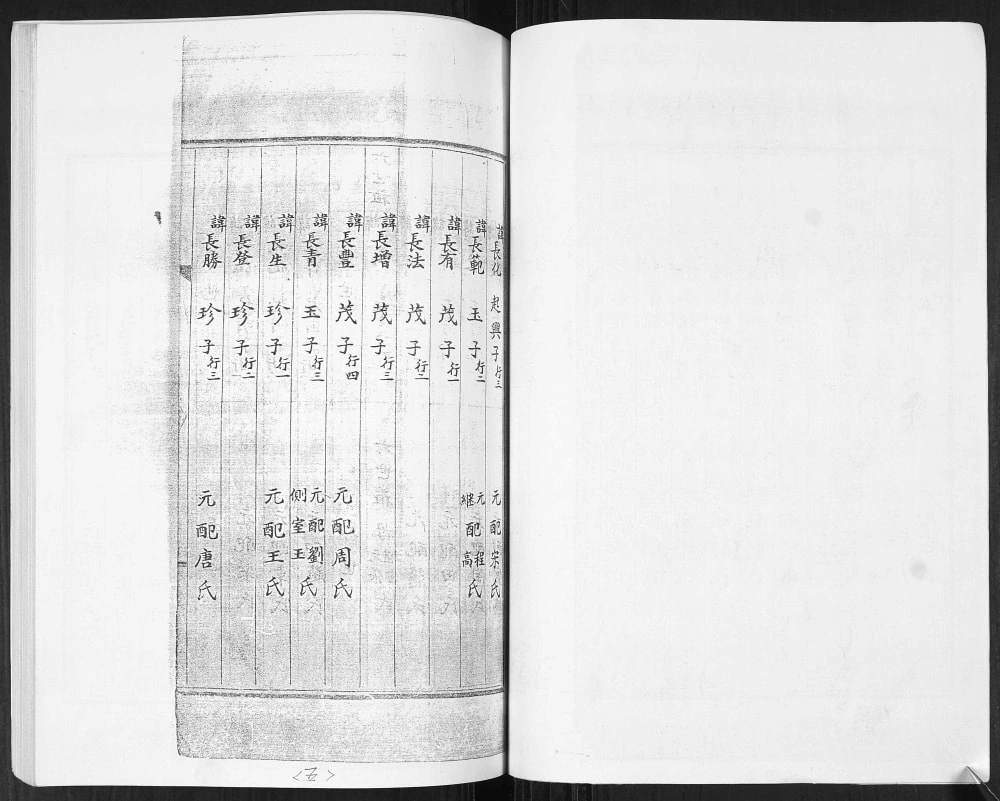 諱長化 起興子行三 元配宋氏
諱長範 玉子行二 元配程 継配高氏
諱長有 茂子行一
諱長法 茂子行二
諱長增 茂子行三
諱長豐 茂子行四 元配周氏
諱長青 玉子行三 元配劉 側室王氏
諱長生 珍子行一 元配王氏
諱長登 珍子行二
諱長勝 珍子行三 元配唐氏